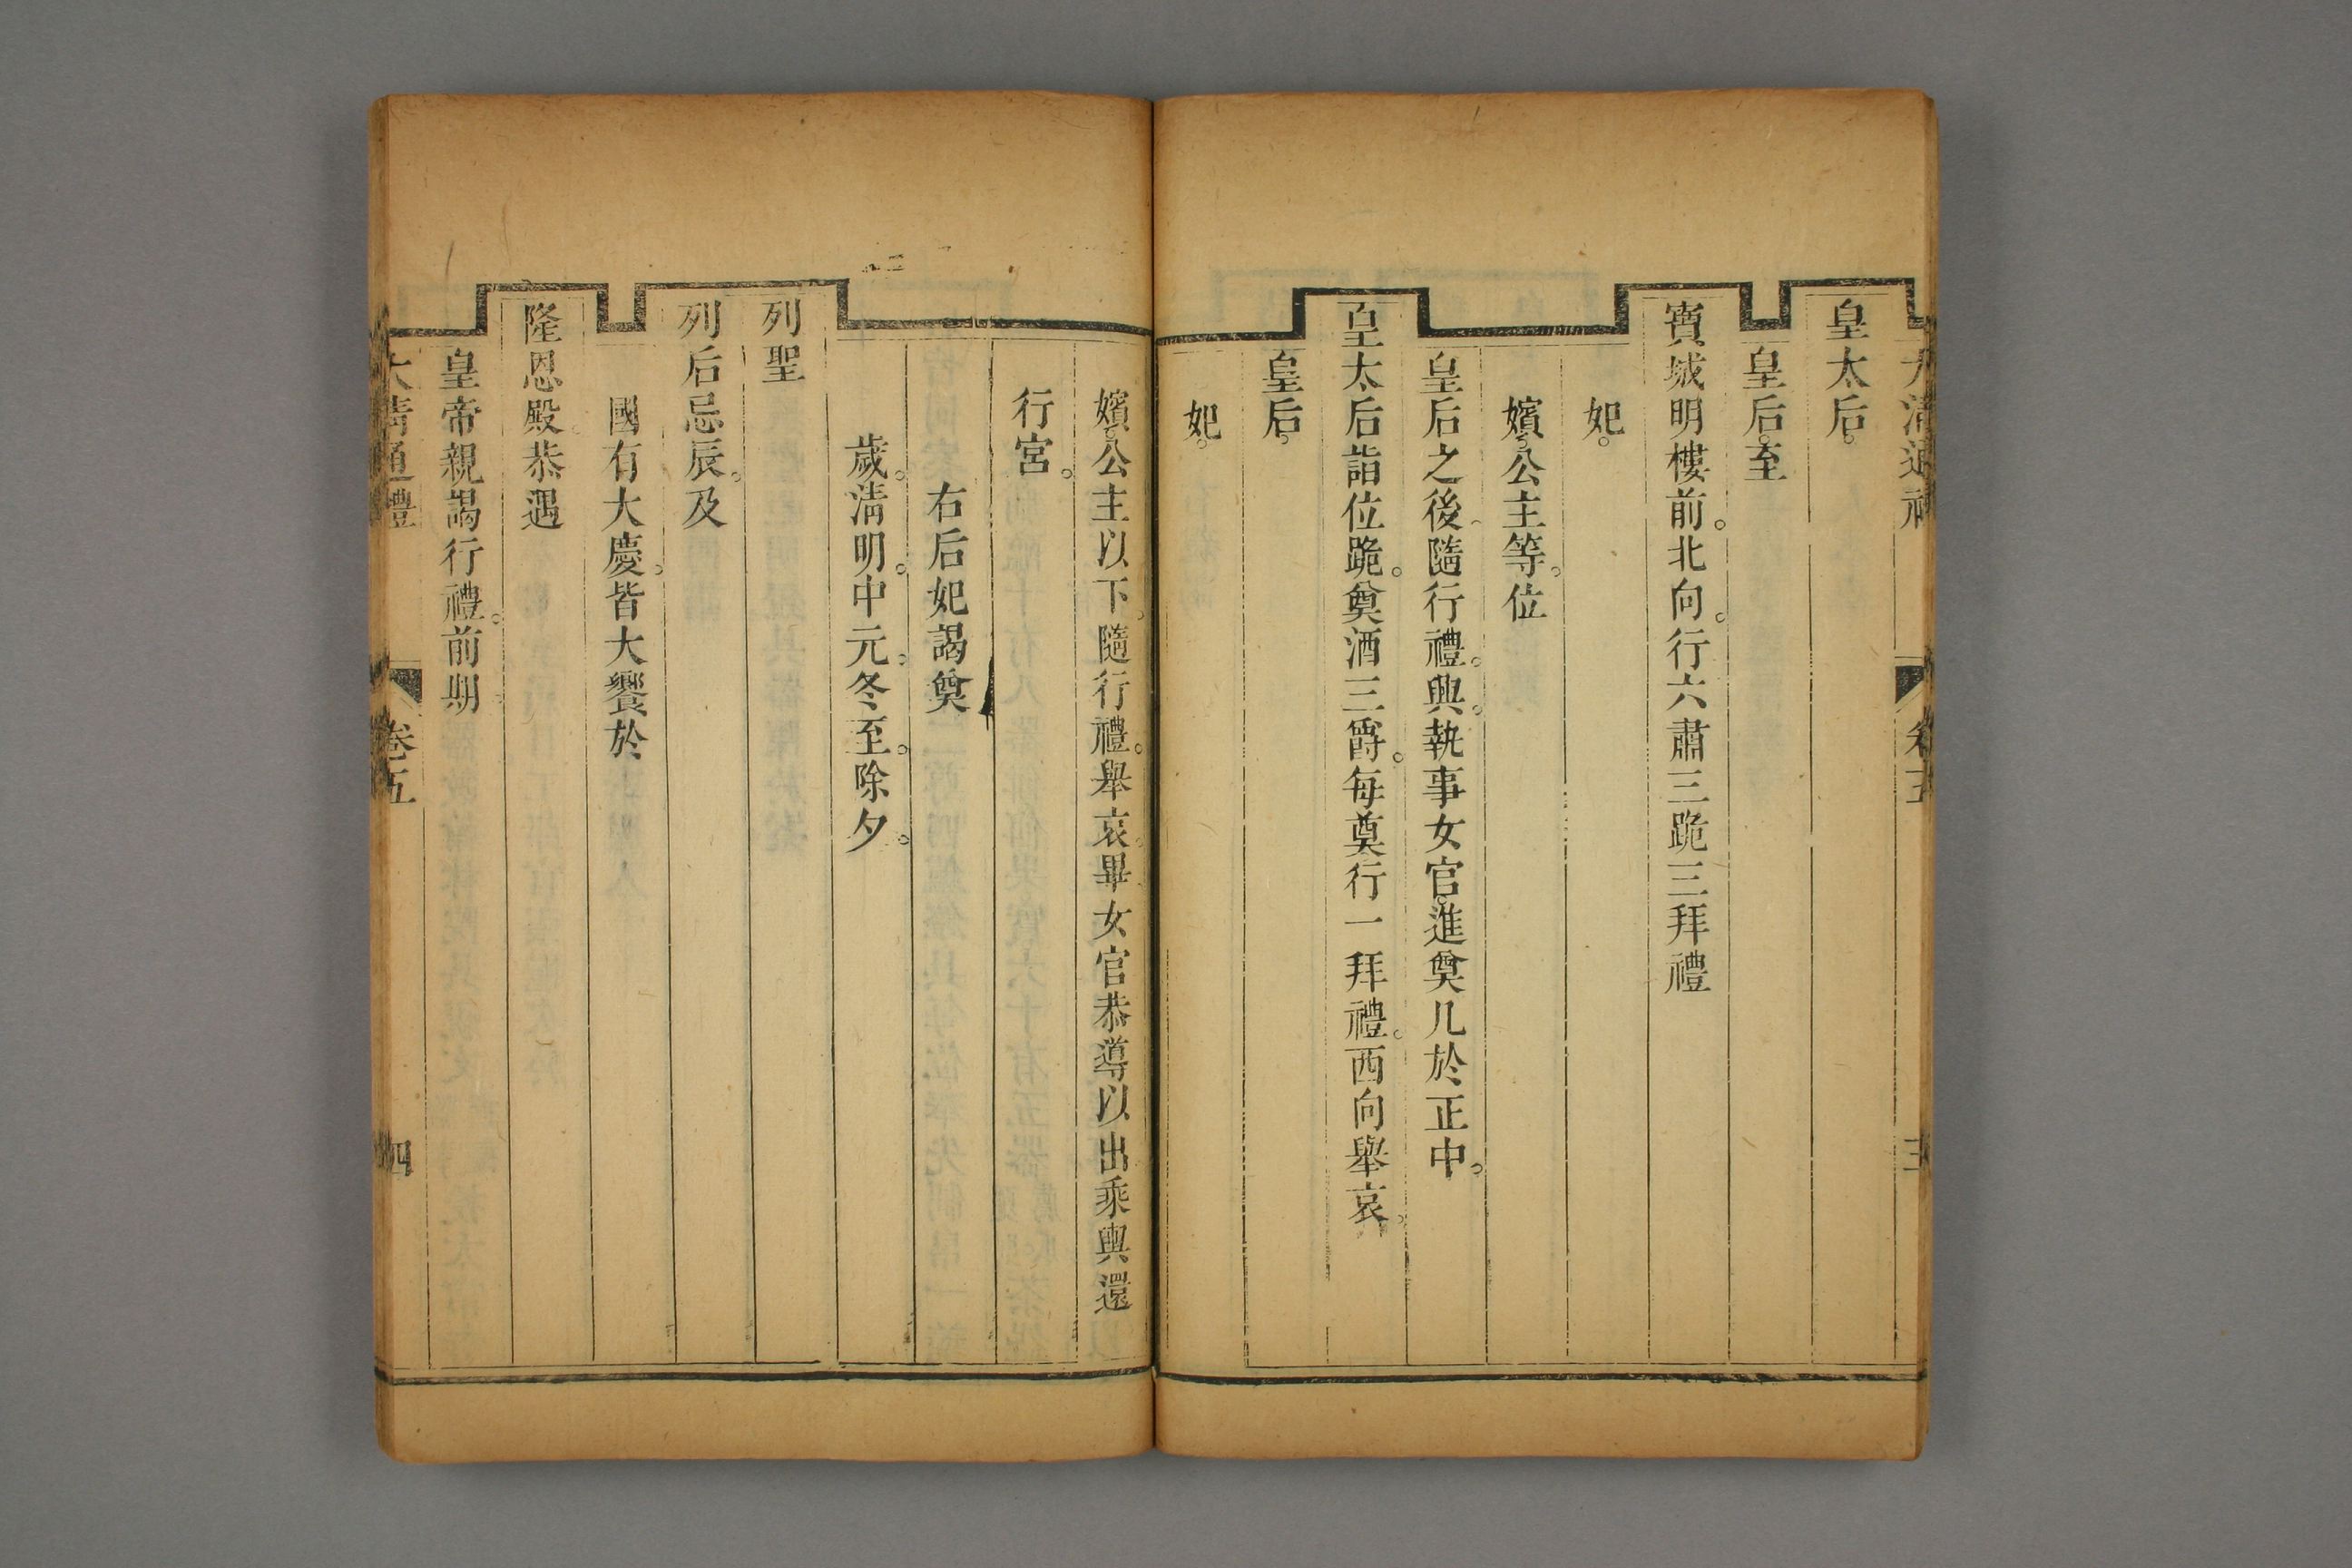 大清通禮 卷五 三
皇太后。
皇后。至
寶城明樓前。北向。行六肅三跪三拜禮
妃。
嬪。公主等。位
皇后之後。隨行禮。興。執事女官。進奠几於正中。
皇太后詣位跪。奠酒三爵。每奠行一拜禮。西向舉哀。
皇后。
妃。
嬪。公主以下。隨行禮。舉哀。畢女官恭導以出乘輿還
行宮。
右后妃謁奠
歲。清明。中元。冬至。除夕。
列聖
列后忌辰。及
國有大慶。皆大饗於
隆恩殿。恭遇
皇帝親謁行禮。前期
大清通禮 卷五 四